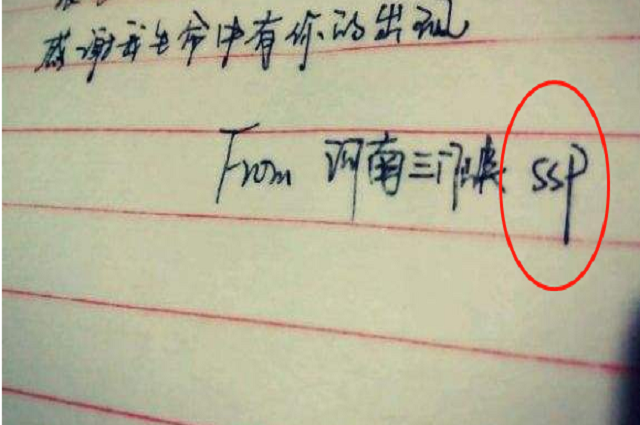 感谢我生命中有你的出现
From 河南三门峡 SSP